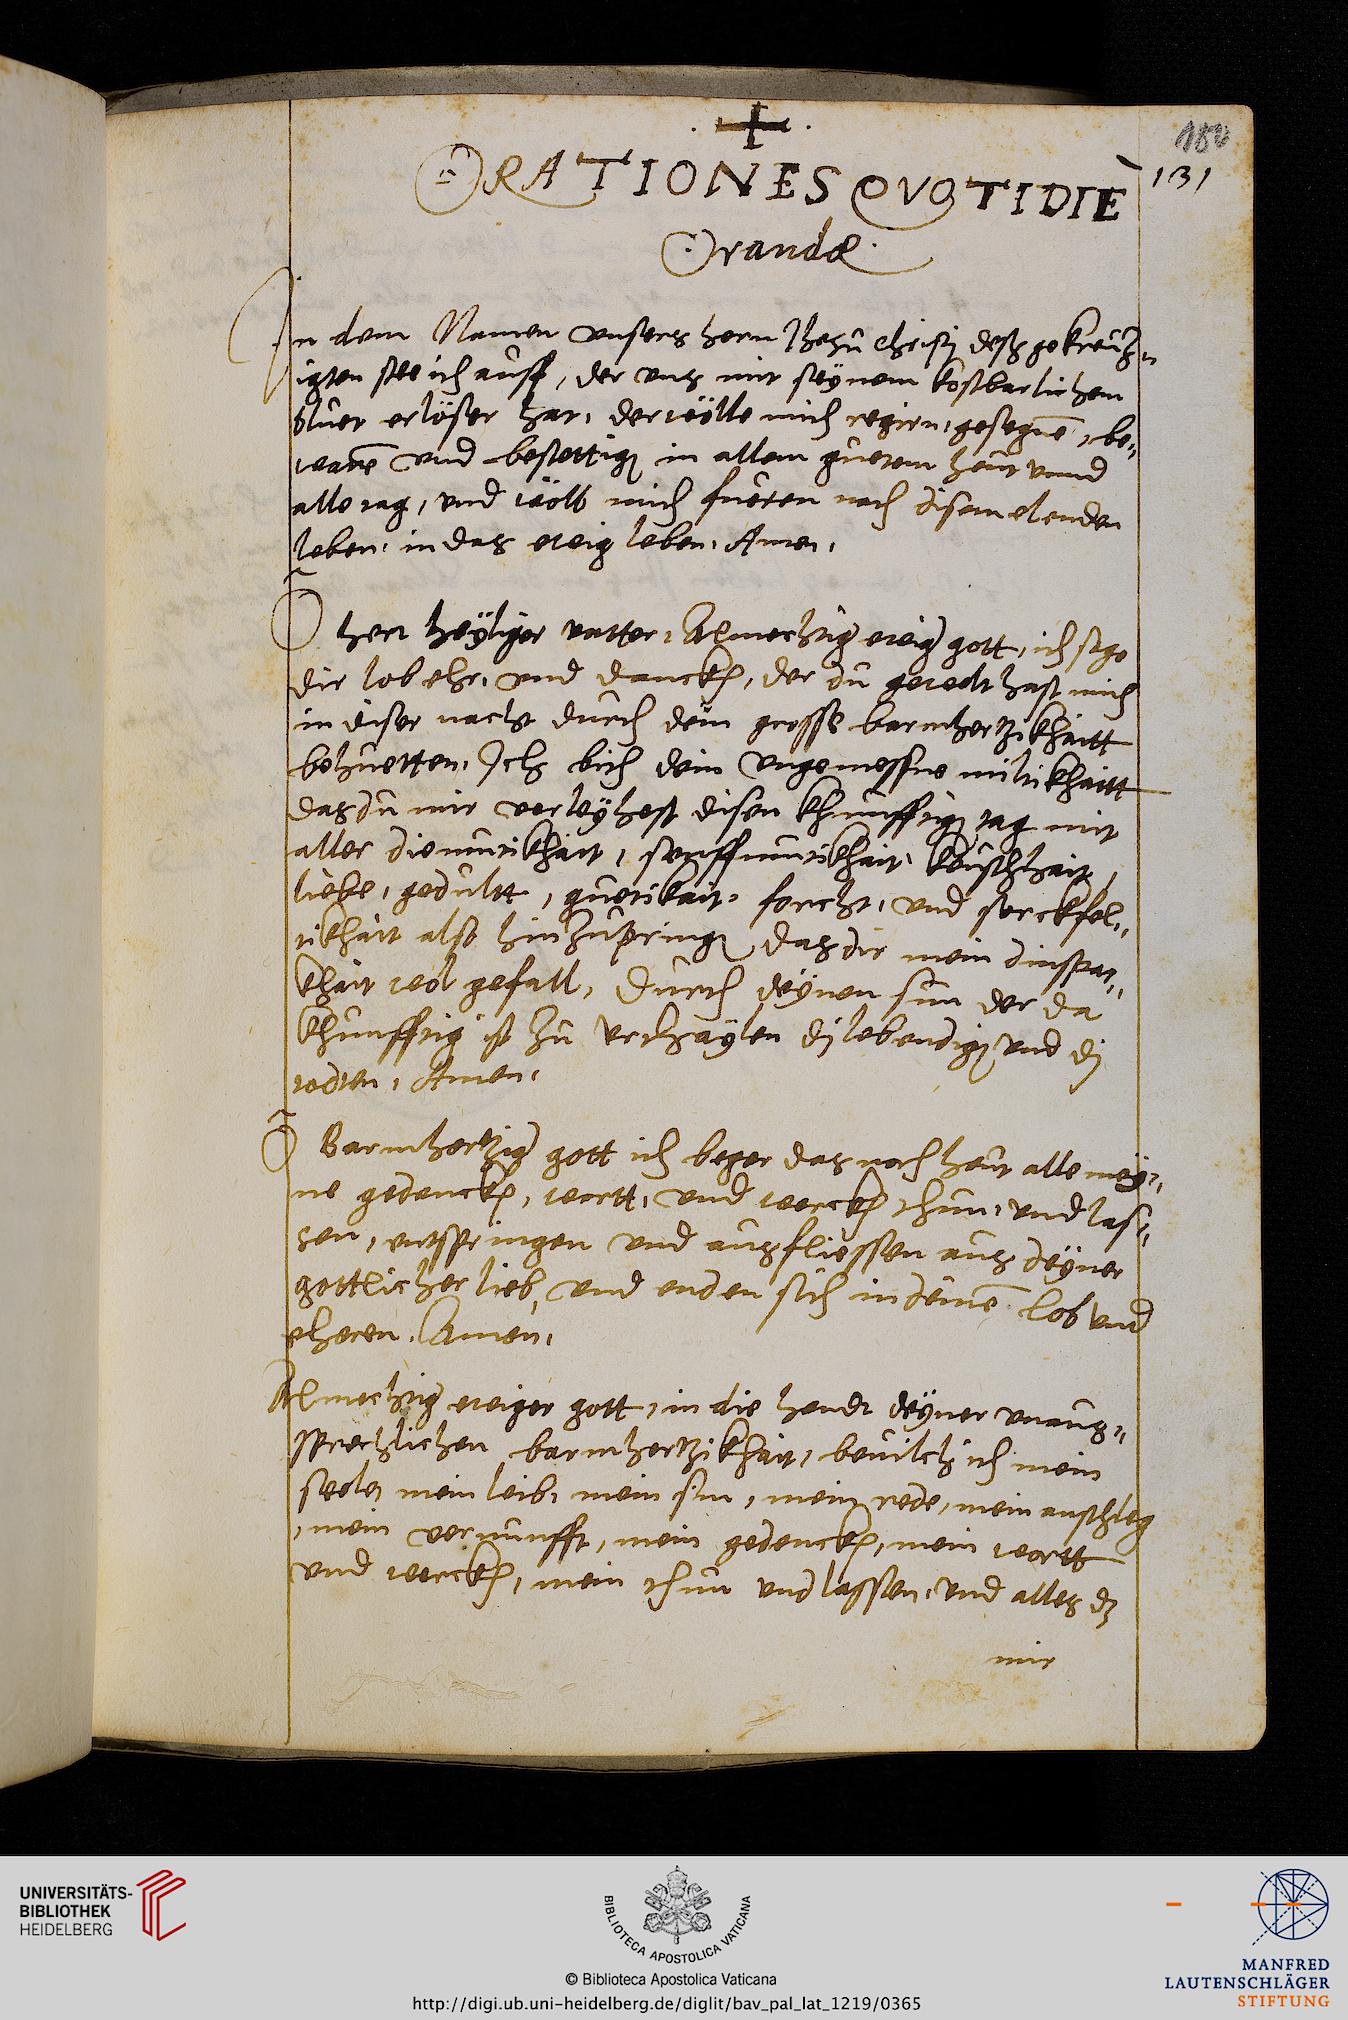 180
131
ORATIONES QVOTIDIE
Orandæ
In dem Namen unsers hern Jhesu Christi deß gekreutz¬
igten stee ich auff, der uns mit seÿnem kostbarlichem
bluet erlöset hat, der wölle mich regirn, gesegnē, be¬
warē und bestettigē in allem guetem heut unnd
alle tag, und wöll mich fueren nach disem elenden
leben, in das ewig leben. Amen.
O herr heÿliger vatter, Almechtig ewig gott, ich sage
dir lob ehr, und danckh, der du gewolt hast mich
in diser nacht durch dein grosse barmhertzikhaitt
behuetten. Ich bith dein ungemessne miltikhaitt
das du mir verleÿhest disen khunfftigen tag mit
aller diemuttikhait, senfftmuttikhait, keuschhait,
liebe, gedultt, guetikait, forcht, und sorckfel¬
tikhait also hinzupringen das dir mein dinspar¬
khait wol gefall, durch deÿnen sun der da
khunfftig ist zu urthaÿlen dj lebendigen und dj
todten, Amen.
O Barmhertzig gott ich beger das noch heut alle meÿ¬
ne gedenckh, wortt, und werckh thun, und las¬
sen, entspringen und ausfliessen aus deÿner
gottlicher lieb, und enden sich in deinē lob und
eheren. Amen.
Almechtig ewiger gott, in die hendt deÿner unaus¬
sprechlichen barmhertzikhait, bevilch ich mein
seele, mein leib, mein sin, mein rede, mein anschleg
, mein vernunfft, mein gedenckh, mein wortt
und werckh, mein thun und lassen, und alles dz
mir
UNIVERSITÄTS-
BIBLIOTHEK
HEIDELBERG
BIBLIOTECA APOSTOLICA VATICANA
© Biblioteca Apostolica Vaticana
http://digi.ub.uni-heidelberg.de/diglit/bav_pal_lat_1219/0365
MANFRED
LAUTENSCHLÄGER
STIFTUNG